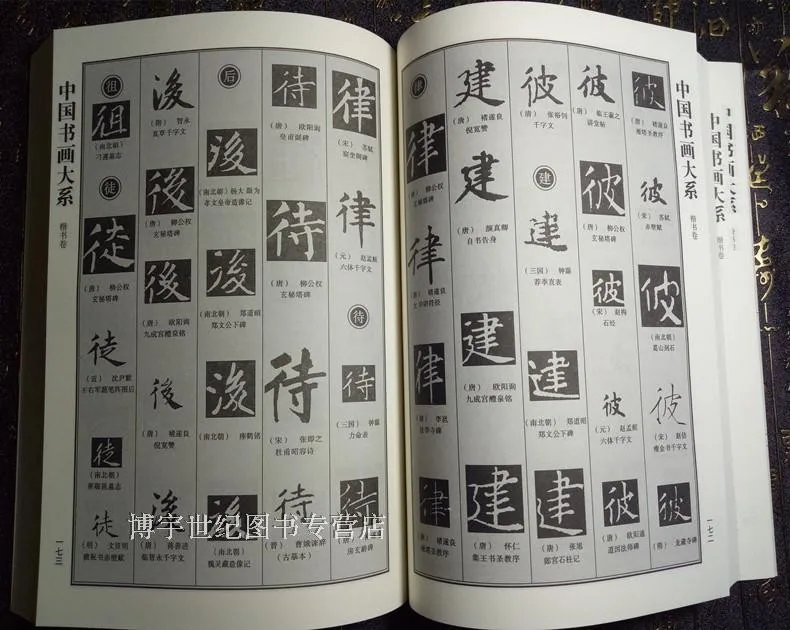 中国书画大系
楷书卷
一七二
彼
（唐） 褚遂良
雁塔圣教序
彼
（宋） 苏轼
赤壁赋
彼
（南北朝）
葛山刻石
彼
（宋） 赵佶
瘦金书千字文
彼
（隋） 龙藏寺碑
彼
（唐） 临王羲之
讲堂帖
彼
（唐） 柳公权
玄秘塔碑
彼
（宋） 赵构
石经
彼
（元） 赵孟頫
六体千字文
彼
（唐） 欧阳通
道因法师碑
彼
（清） 张裕钊
千字文
建
建
（三国） 钟繇
荐季直表
建
（南北朝） 郑道昭
郑文公下碑
建
（唐） 张旭
郎官石柱记
建
（唐） 褚遂良
倪宽赞
建
（唐） 颜真卿
自书告身
建
（唐） 欧阳询
九成宫醴泉铭
建
（唐） 怀仁
集王书圣教序
律
律
（唐） 柳公权
玄秘塔碑
律
（唐） 褚遂良
大字阴符经
律
（唐） 李邕
律
（唐） 褚遂良
雁塔圣教序
律
（宋） 苏轼
宸奎阁碑
律
（元） 赵孟頫
六体千字文
待
待
（三国） 钟繇
力命表
待
房玄龄碑
待
（唐） 欧阳询
皇甫诞碑
待
（唐） 柳公权
玄秘塔碑
待
（宋） 张即之
杜甫昭容诗
待
（晋） 曹娥诔辞
（古摹本）
后
後
（南北朝）杨大眼为
孝文皇帝造像记
後
（南北朝） 郑道昭
郑文公下碑
後
（南北朝） 瘗鹤铭
後
（南北朝）
魏灵藏造像记
後
（隋） 智永
真草千字文
後
（唐） 柳公权
玄秘塔碑
後
（唐） 欧阳询
九成宫醴泉铭
後
（唐） 褚遂良
倪宽赞
後
（唐） 蒋善进
临智永千字文
徂
徂
（南北朝）
刁遵墓志
徒
徒
（唐） 柳公权
玄秘塔碑
徒
（近） 沈尹默
王右军题笔阵图后
徒
（南北朝）
徒
（明） 文徵明
中国书画大系
楷书卷
一七三
中国书画大系
楷书卷
中国书画大系
博宇世纪图书专营店